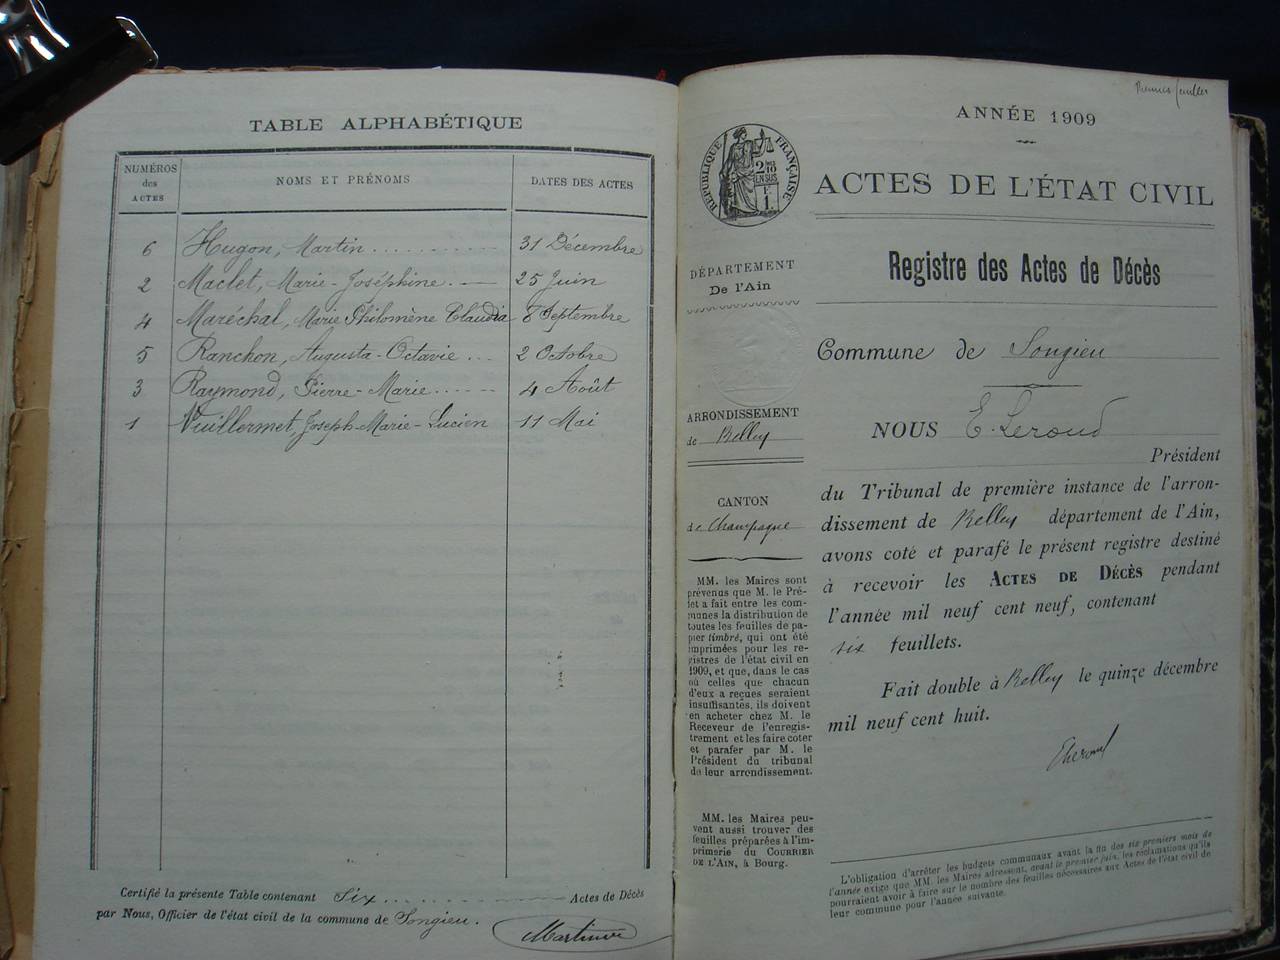 TABLE ALPHABÉTIQUE
NUMÉROS des ACTES | NOMS ET PRÉNOMS | DATES DES ACTES
6 Hugon, Martin 31 Décembre
2 Maclet, Marie-Joséphine 25 Juin
4 Maréchal, Marie Philomène Claudia 8 Septembre
5 Ranchon, Augusta-Octavie 2 Octobre
3 Raymond, Pierre-Marie 4 Août
1 Vuillermet, Joseph-Marie-Lucien 11 Mai
Certifié la présente Table contenant Six Actes de Décès
par Nous, Officier de l'état civil de la commune de Songieu.
RÉPUBLIQUE FRANÇAISE
DÉPARTEMENT
De l'Ain
ARRONDISSEMENT
de Belley
CANTON
de Champagne
MM. les Maires sont
prévenus que M. le Pré-
fet a fait entre les com-
munes la distribution de
toutes les feuilles de pa-
pier timbré, qui ont été
imprimées pour les re-
gistres de l'état civil en
1909, et que, dans le cas
où celles que chacun
d'eux a reçues seraient
insuffisantes, ils doivent
en acheter chez M. le
Receveur de l'enregis-
trement et les faire coter
et parafer par M. le
Président du tribunal
de leur arrondissement.
MM. les Maires peu-
vent aussi trouver des
feuilles préparées à l'im-
primerie du COURRIER
DE L'AIN, à Bourg.
ANNÉE 1909
ACTES DE L'ÉTAT CIVIL
Registre des Actes de Décès
Commune de Songieu
NOUS E. Leroud
Président
du Tribunal de première instance de l'arron-
dissement de Belley département de l'Ain,
avons coté et parafé le présent registre destiné
à recevoir les ACTES DE DÉCÈS pendant
l'année mil neuf cent neuf, contenant
six feuillets.
Fait double à Belley le quinze décembre
mil neuf cent huit.
L'obligation d'arrêter les budgets communaux avant la fin des six premiers mois de
l'année exige que MM. les Maires adressent, avant le premier juin, les réclamations qu'ils
pourraient avoir à faire sur le nombre des feuilles nécessaires aux Actes de l'état civil de
leur commune pour l'année suivante.